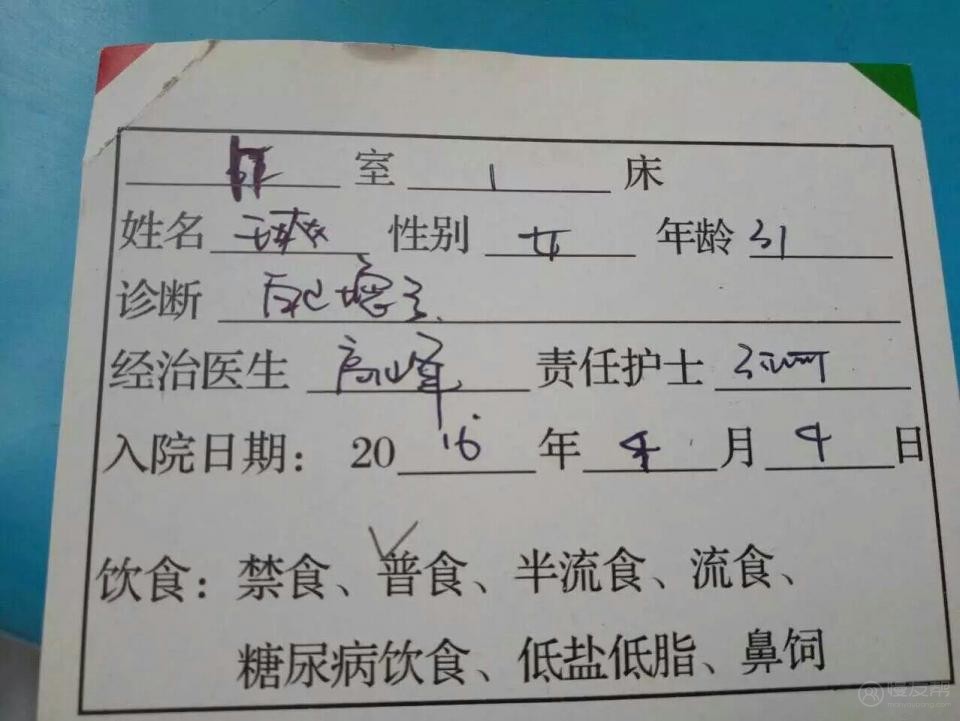 室 1 床
姓名 性别 女 年龄 31
诊断
经治医生 高峰 责任护士
入院日期: 2016年4月4日
饮食: 禁食、普食、半流食、流食、
糖尿病饮食、低盐低脂、鼻饲
慢友帮